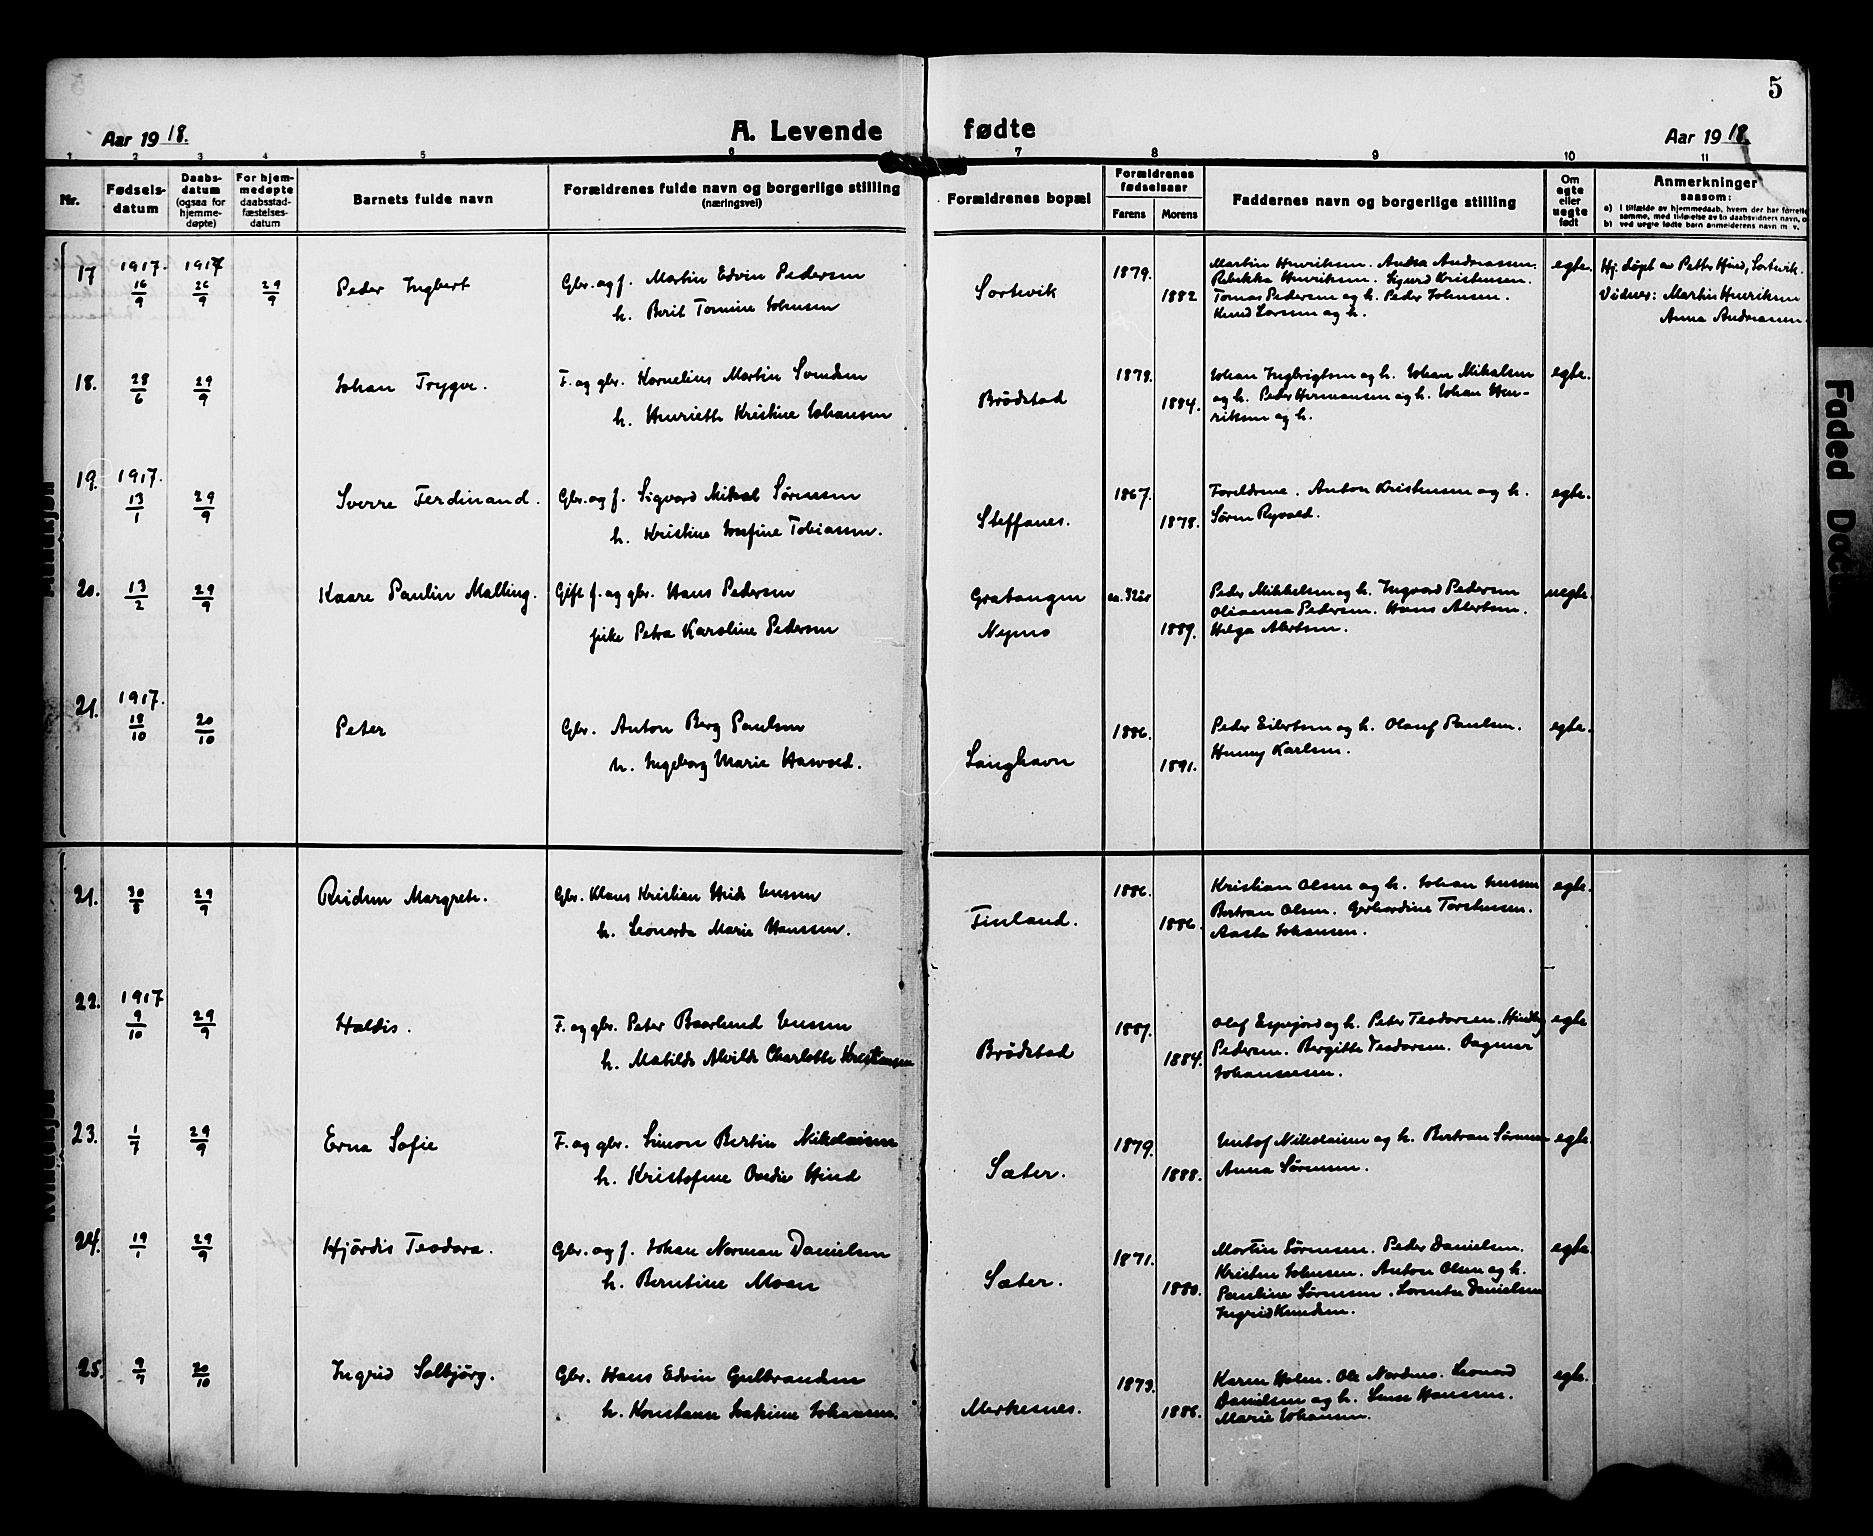 5
Aar 1918.
A. Levende fødte
Aar 1918.
1 2 3 4 5 6 7 8 9 10 11
Nr.
Fødsels-
datum
Daabs-
datum
(ogsaa for
hjemme-
døpte)
For hjem-
medøpte
daabsstad-
fæstelses-
datum
Barnets fulde navn
Forældrenes fulde navn og borgerlige stilling
(næringsvei)
Forældrenes bopæl
Forældrenes
fødselsaar
Farens
Morens
Faddernes navn og borgerlige stilling
Om
ægte
eller
uegte
født
Anmerkninger
saasom:
a) i tilfælde av hjemmedaab, hvem der har forrettet
samme, med tilføielse av to daabsvidners navn, o
b) ved uegte fødte barn anmelderens navn m. v.
17 1917. 16/9 1917 26/9 29/9
Peder Ingbert
Gbr. og f. Martin Edvin Pedersen
h. Berit Tomine Johnsen
Sortevik
1879.
1882
Martin Henriksen. Andrea Andreassen.
Rebekka Henriksen. Sigurd Kristensen.
Tomas Pedersen og h. Peder Johnsen.
Knud Larsen og h.
egte.
Hj. døpt av Petter Hind, Sortevik.
Vidner: Martin Henriksen
Anna Andreassen.
18. 28/6 29/9
Johan Trygve.
F. og gbr. Kornelius Martin Svendsen
h. Henriette Kristine Johansen
Brødstad
1879.
1884.
Johan Ingbrigtsen og h. Johan Mikalsen
og h. Peder Hermansen og h. Johan Hen-
riksen og h.
egte.
19. 1917. 13/1 29/9
Sverre Ferdinand.
Gbr. og f. Sigvard Mikal Sørensen
h. Kristine Josefine Tobiassen.
Steffanes.
1867.
1878.
Foreldrene. Anton Kristensen og h.
Søren Ryvold.
egte.
20. 13/2 29/9
Kaare Paulin Malling.
Gift f. og gbr. Hans Pedersen
pike Petra Karoline Pedersen
Gratangen
Nymo
ca. 32 år
1889.
Peder Mikkelsen og h. Ingvard Pedersen
Olianna Pedersen. Hans Albertsen.
Helga Albertsen.
uegte.
21. 1917. 18/10 20/10
Peter
Gbr. Anton Berg Paulsen
h. Ingeborg Marie Havold.
Langhavn
1886.
1891.
Peder Eilertsen og h. Olauf Paulsen.
Henny Karlsen.
egte.
21. 30/8 29/9
Reidun Margrete.
Gbr. Klaus Kristian Hind Jensen
h. Leonarda Marie Hanssen.
Finland.
1886.
1886.
Kristian Olsen og h. Johan Jensen
Bertran Olsen. Gerhardine Torstensen.
Aasta Johansen.
egte.
22. 1917 9/10 29/9
Haldis.
F. og gbr. Peter Baarlund Jensen
h. Matilde Alvilde Charlotte Kristiansen
Brødstad
1887.
1884.
Olaf Espejord og h. Peter Teodorsen.
Pedersen. Bergitte Teodorsen. Dagmar
Johannesen.
egte
23. 1/7 29/9
Erna Sofie
F. og gbr. Simon Bertin Nikolaisen
h. Kristofine Ovedie Hind
Sæter.
1879.
1888.
Jentof Nikolaisen og h. Bertran Sørensen
Anna Sørensen.
egte.
24. 19/1 29/9
Hjørdis Teodora.
Gbr. og f. Johan Norman Danielsen
h. Berntine Moan
Sæter.
1871.
1880.
Martin Sørensen. Peder Danielsen.
Kristen Johnsen. Anton Olsen og h.
Pauline Sørensen. Lorentse Danielsen
Ingrid Knudsen.
egte.
25. 9/7 20/10
Ingrid Solbjørg.
Gbr. Hans Edvin Gulbrandsen
h. Konstanse Joakime Johansen.
Merkesnes.
1873.
1886.
Karen Holm. Ole Nordmo. Leonard
Danielsen og h. Hanssen.
Marie Johansen.
egte.
Faded Docu